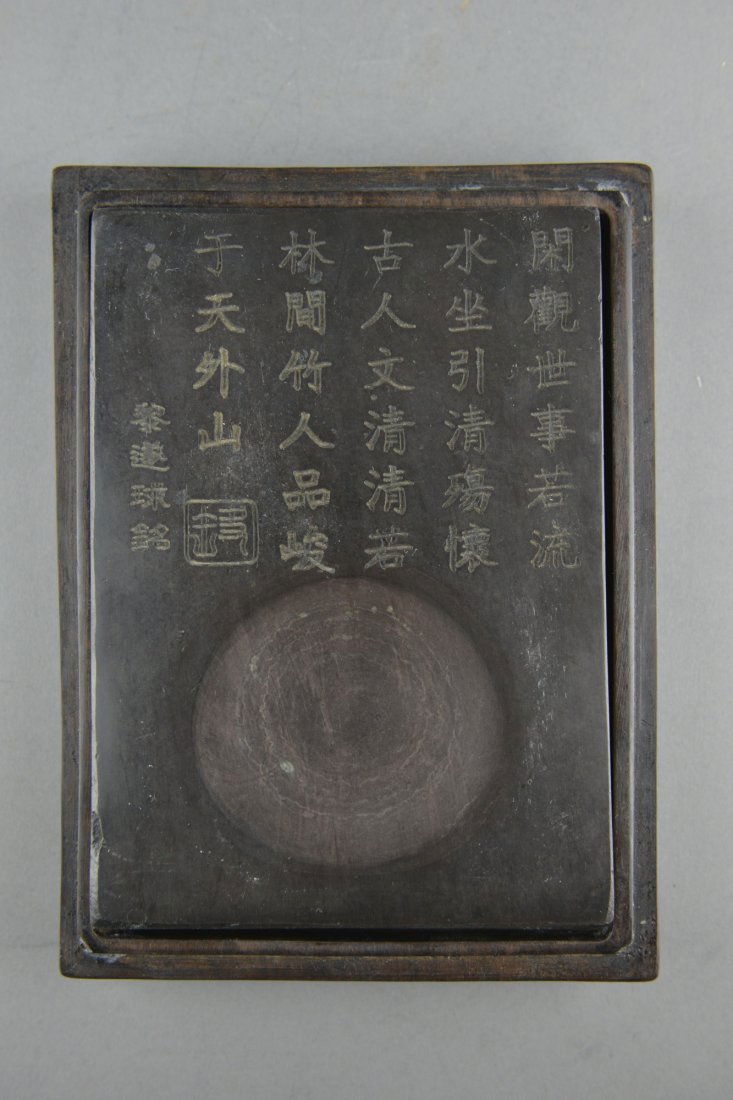 閑觀世事若流
水坐引清殤懷
古人文清清若
林間竹人品峻
于天外山
黎遂球銘